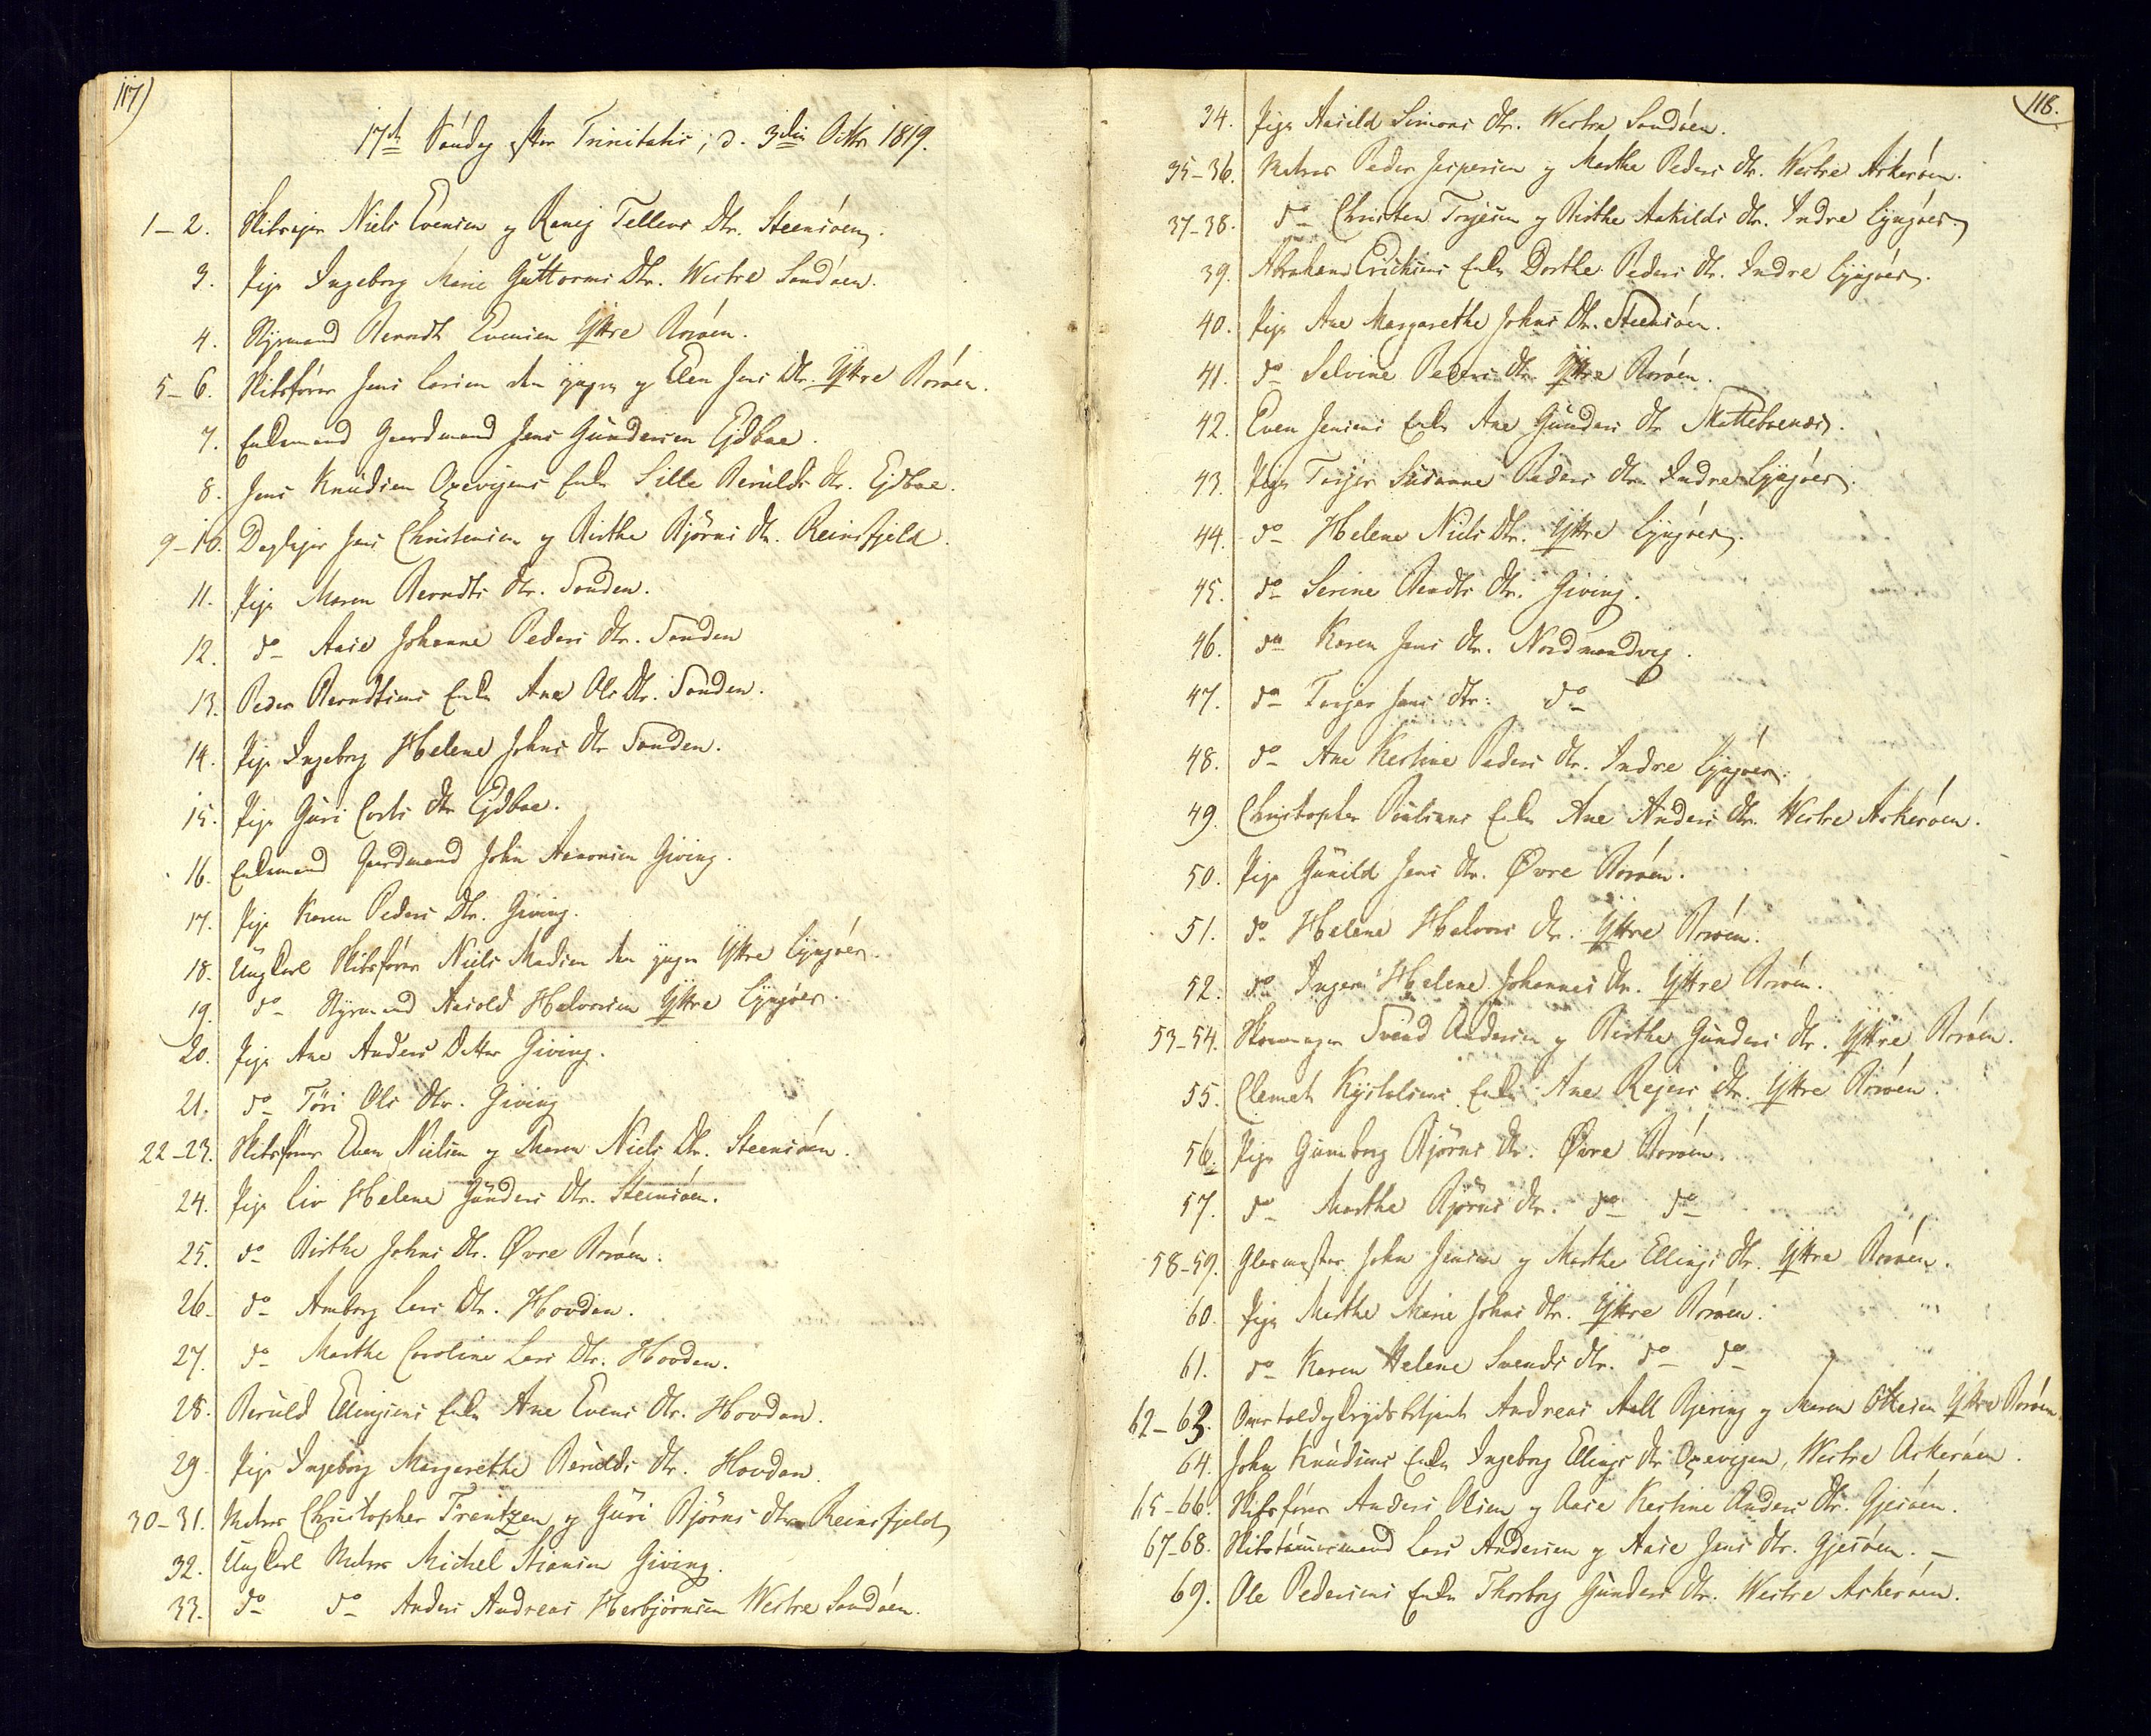 117)
17de Søndag efter Trinitatis, d. 3die Octbr 1819.
1-2. Skibsejer Niels Evensen og Raneg Tellevs Dtr. Steensöen.
3. Pige Ingeborg Marie Guttorms Dtr. Westre Sandöen.
4. Styrmand Berndt Evensen Yttre Boröen.
5-6. Skibsförer Jens Larsen den yngre og Elen Jens Dtr. Yttre Boröen.
7. Enkemand Gaardmand Jens Gundersen Ejdboe.
8. Jens Knudsen Oxevigens Enke Sille Berulds Dtr. Ejdboe.
9-10. Daglejer Jens Christensen og Birthe Björns Dtr. Reinsfjeld.
11. Pige Maren Berndts Dtr. Sanden.
12. do Aase Johanne Peders Dtr. Sanden
13. Peder Berndtsens Enke Ane Ols Dtr. Sanden.
14. Pige Ingeborg Helene Johns Dtr Sanden.
15. Pige Guri Corts Dtr Ejdboe.
16. Enkemand Gaardmand John Aanonsen Giving.
17. Pige Karen Peders Dtr. Giving.
18. Ungkarl Skibsförer Niels Madsen den yngre Yttre Lyngöer.
19. do Styrmand Aasold Halvorsen Yttre Lyngöer.
20. Pige Ane Anders Dtter Giving.
21. do Töri Ols Dtr. Giving
22-23. Skibsförer Even Nielsen og Maren Niels Dtr. Steensöen.
24. Pige Liv Helene Gunders Dtr. Steensöen.
25. do Birthe Johns Dtr. Øvre Boröen.
26. do Anborg Lars Dtr. Hovden.
27. do Marthe Caroline Lars Dtr. Hovden.
28. Beruld Ellingsens Enke Ane Evens Dtr. Hovden.
29. Pige Ingeborg Margarethe Berulds Dtr. Hovden.
30-31. Matros Christopher Frantzen og Guri Björns Dtr Reinsfjeld
32. Ungkarl Matros Michel Stiansen Giving.
33. do do Anders Andreas Herbjörnsen Westre Sandöen.
118.
34. Pige Aasild Simons Dtr. Westre Sandöen.
35-36. Matros Peder Jespersen og Marthe Peders Dtr. Westre Askeröen.
37-38. do Christen Terjesen og Birthe Askilds Dtr. Indre Lyngöer.
39. Abraham Erichsens Enke Dorthe Peders Dtr. Indre Lyngöer.
40. Pige Ane Margarethe Johns Dtr. Steensöen.
41. do Selvine Peders Dtr Yttre Boröen.
42. Even Jensens Enke Ane Gunders Dtr Skattebоenes.
43. Pige Terjer Susanne Peders Dtr. Indre Lyngöer.
44. do Helene Niels Dtr. Yttre Lyngöer.
45. do Serine Bendts Dtr. Giving.
46. do Karen Jens Dtr. Nordmandvig.
47. do Terjer Jens Dtr. do
48. do Ane Kestine Peders Dtr. Indre Lyngöer.
49. Christopher Poulsens Enke Ane Anders Dtr. Westre Askeröen.
50. Pige Gunild Jens Dtr. Øvre Boröen.
51. do Helene Halvors Dtr. Yttre Boröen.
52. do Inger Helene Johannes Dtr. Yttre Boröen.
53-54. Skomager Svend Andersen og Birthe Gunders Dtr. Yttre Boröen.
55. Clemet Kystolsens Enke Ane Rejers Dtr. Yttre Boröen.
56. Pige Gunborg Björns Dtr. Øvre Boröen.
57. do Marthe Björns Dtr. do do
58-59. Glarmester John Jensen og Marthe Ellings Dtr. Yttre Boröen.
60. Pige Marthe Marie Johns Dtr. Yttre Boröen.
61. do Karen Helene Svends Dtr. do do
62-63. Overtoldbetjent Andreas Aall Bjering og Maren Ottesen Yttre Boröen.
64. John Knudsens Enke Ingeborg Ellings Dtr Oxevigen, Westre Askeröen.
65-66. Skibsförer Anders Olsen og Aase Kestine Anders Dtr. Gjesöen.
67-68. Skibstömmermand Lars Andersen og Aase Jens Dtr. Gjesöen.
69. Ole Pedersens Enke Thorborg Gunders Dtr. Westre Askeröen.